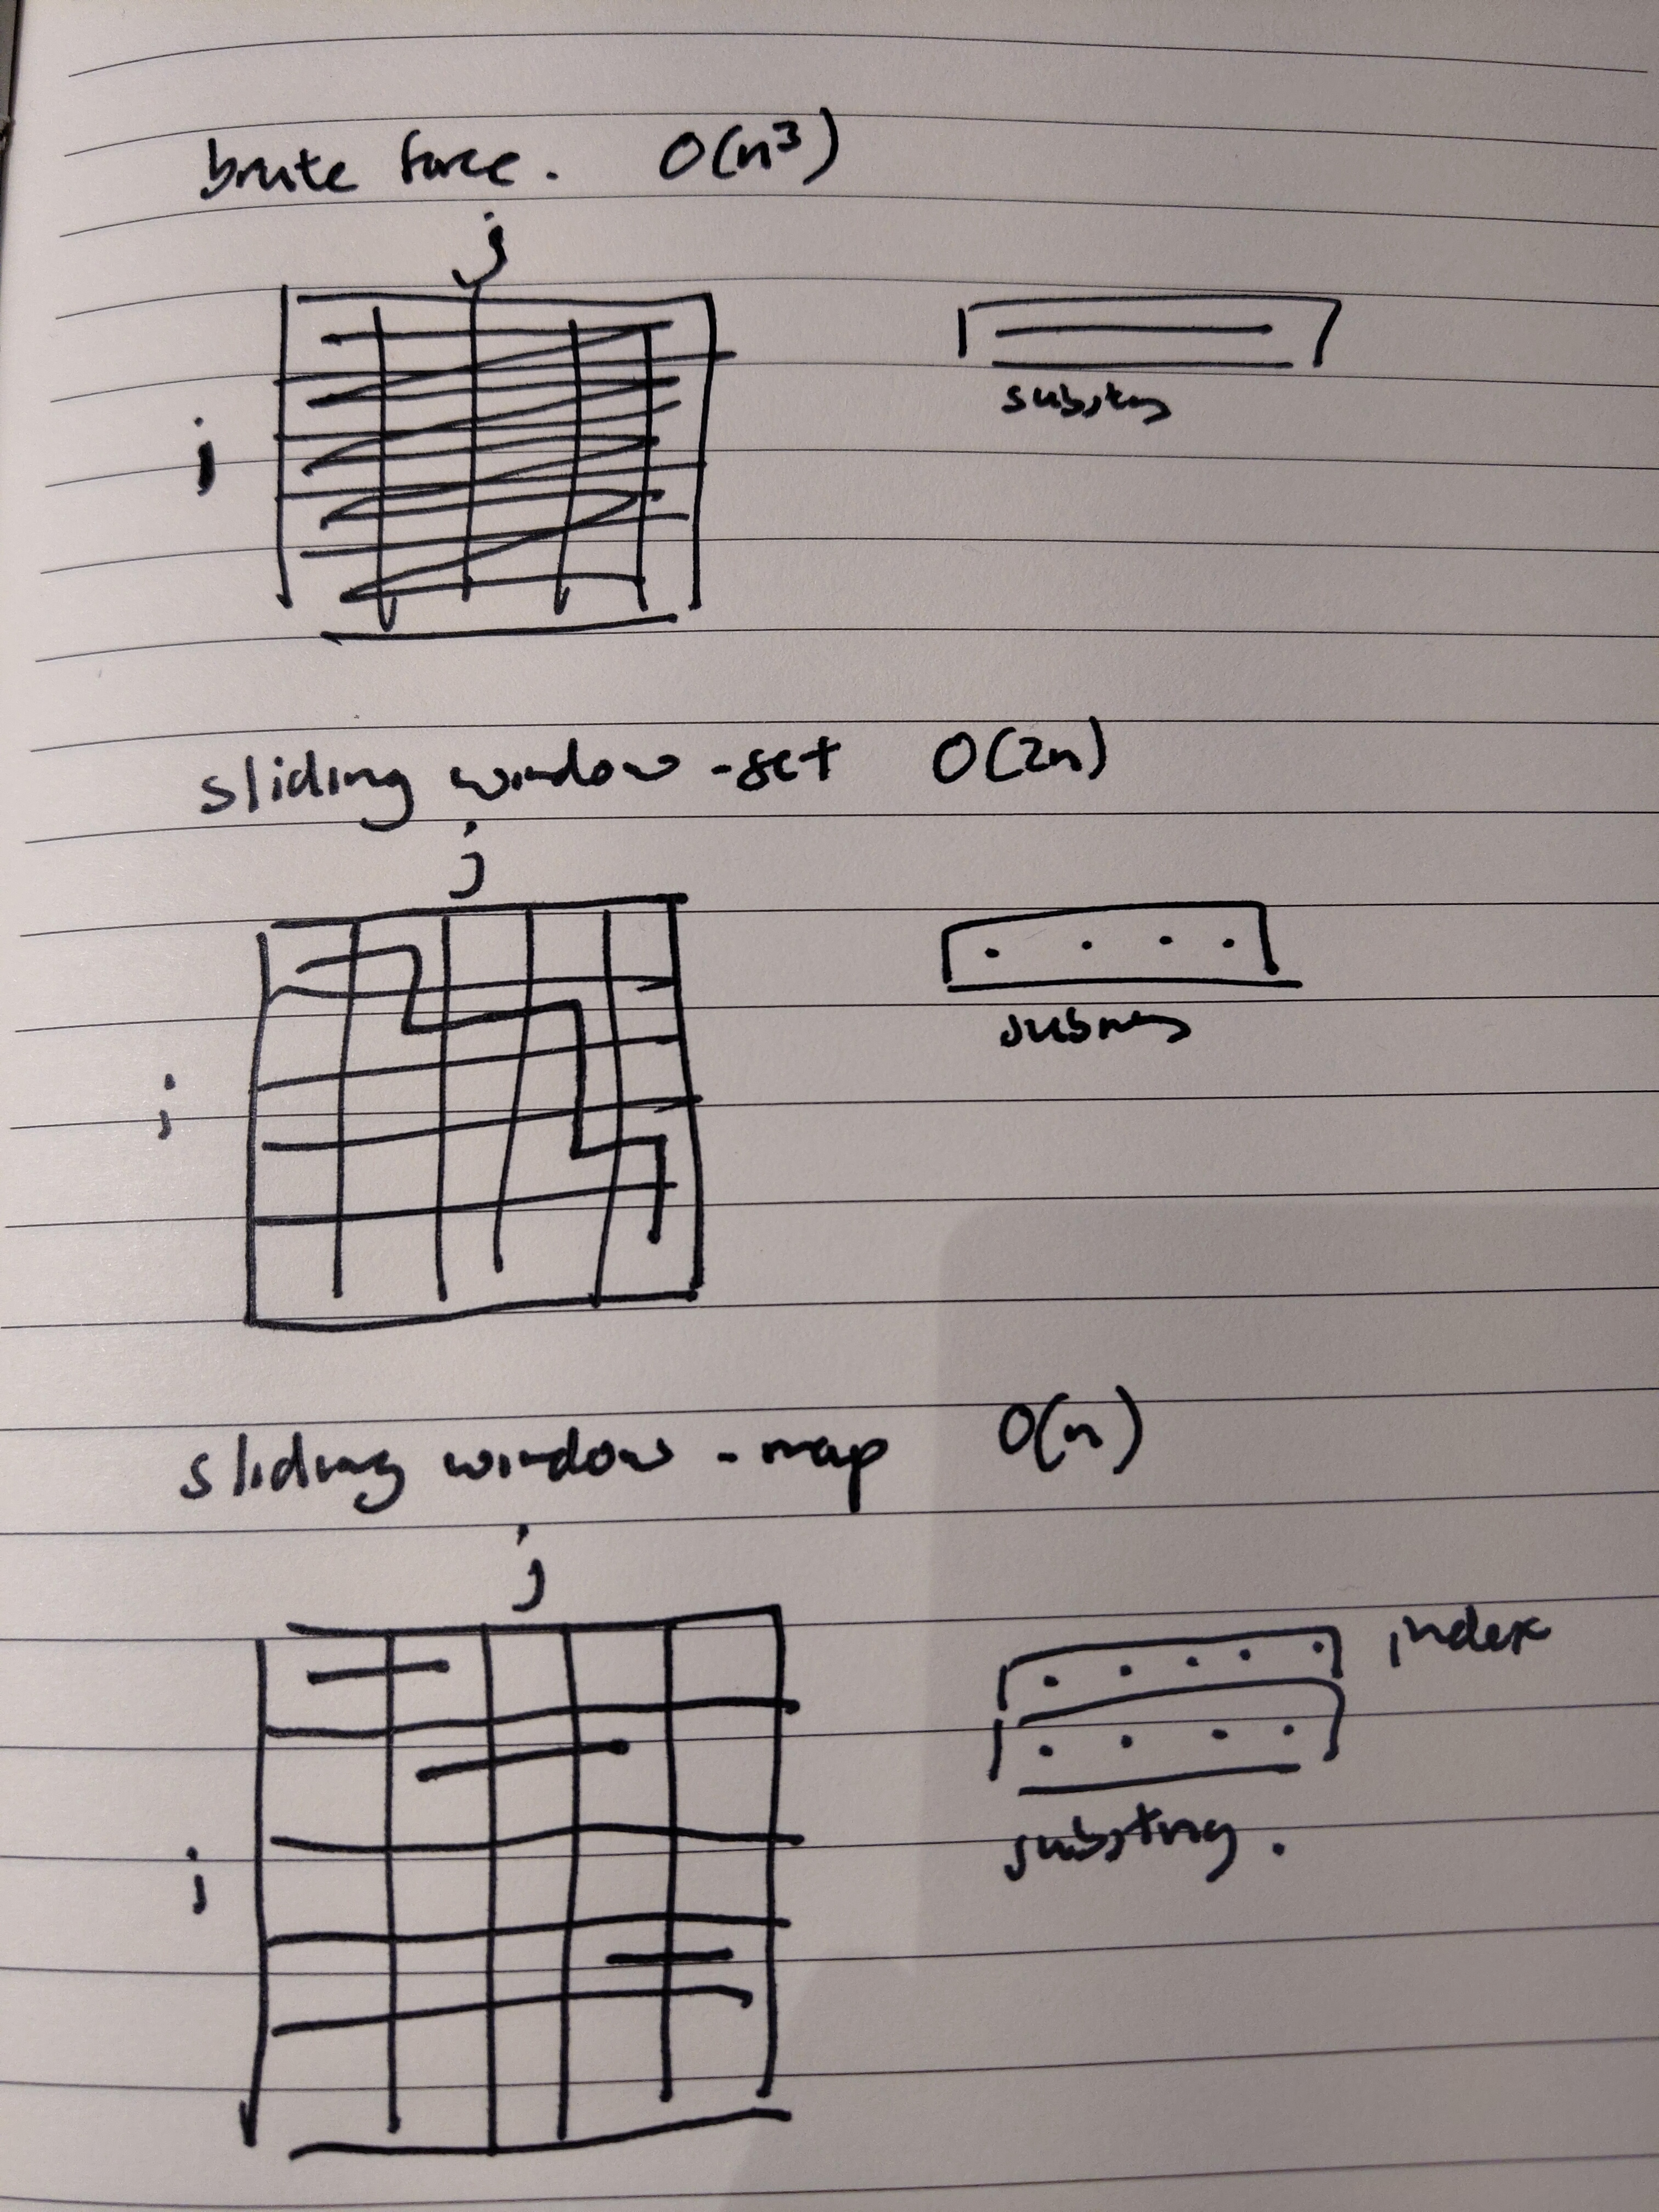 brute force. O(n³)
j
i
substring
sliding window - set O(2n)
j
i
substring
sliding window - map O(n)
j
index
i
substring.